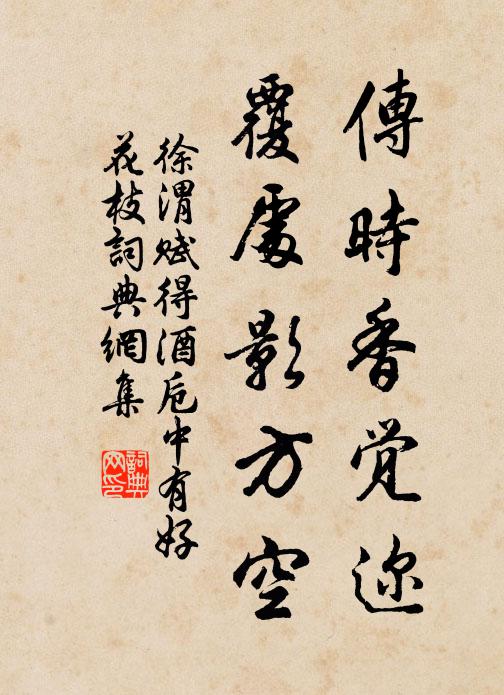 傳時香覺迩
覆處影方空
徐渭賦得酒卮中有好
花枝詞典網集
詞典網印